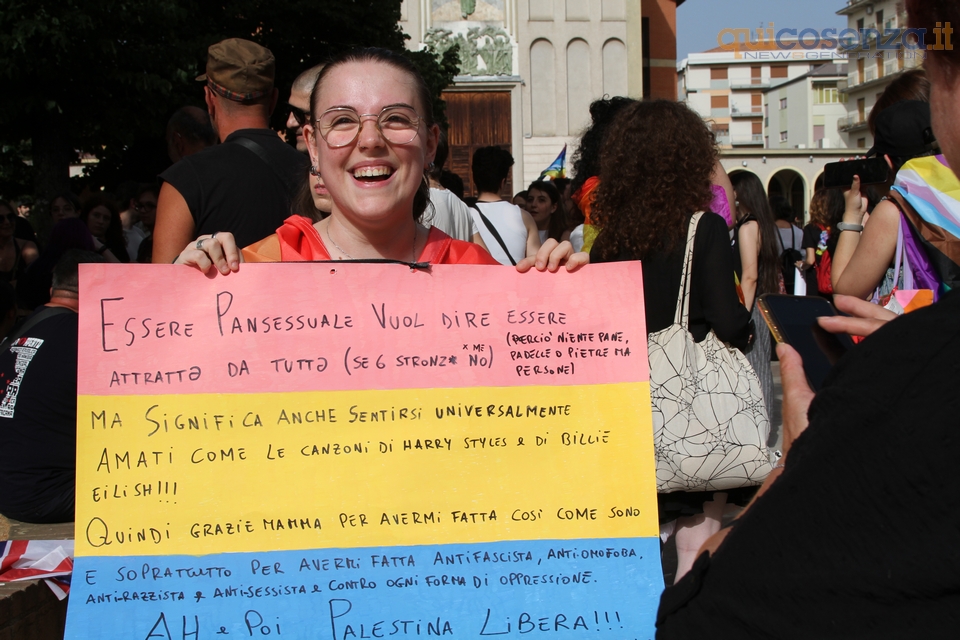 quicosenza.it
NEWS&GEN
ESSERE PANSESSUALE VUOL DIRE ESSERE
ATTRATTƏ DA TUTTƏ (SE 6 STRONZ* X ME NO)
(PERCIÒ NIENTE PANE,
PADELLE O PIETRE MA
PERSONE)
MA SIGNIFICA ANCHE SENTIRSI UNIVERSALMENTE
AMATI COME LE CANZONI DI HARRY STYLES e DI BILLIE
EILISH!!!
QUINDI GRAZIE MAMMA PER AVERMI FATTA COSÌ COME SONO
E SOPRATTUTTO PER AVERMI FATTA ANTIFASCISTA, ANTI-OMOFOBA,
ANTI-RAZZISTA e ANTI-SESSISTA e CONTRO OGNI FORMA DI OPPRESSIONE.
AH e POI PALESTINA LIBERA!!!